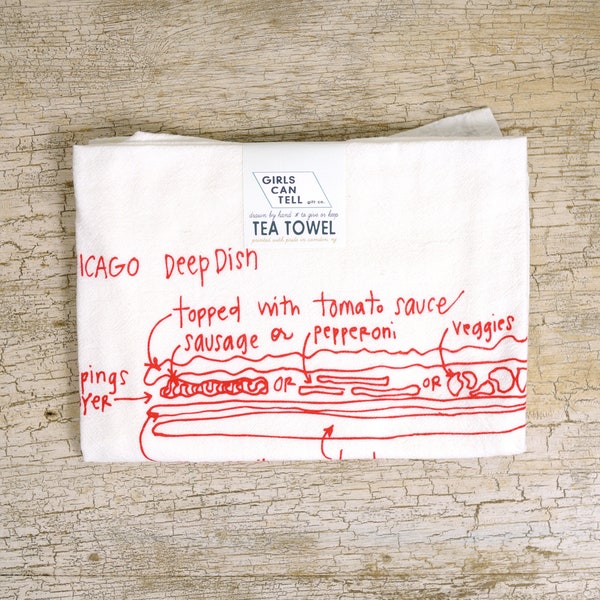 GIRLS
CAN
TELL gift co.
drawn by hand & to give or keep
TEA TOWEL
ICAGO Deep Dish
topped with tomato sauce
sausage or pepperoni
veggies
OR OR
pings
YER